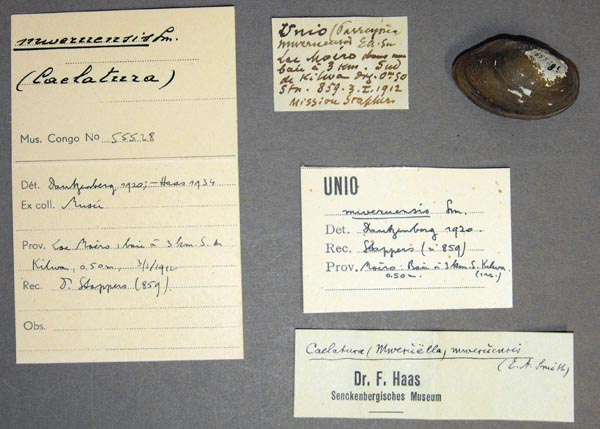 mweruensis Sm.
(Caelatura)
Mus. Congo No 55528
Dét. Dautzenberg 1920; – Haas 1934
Ex coll. Musée
Prov. Lac Moëro: baie à 3 km S. de
Kilwa, 0,50m, 3/1/1912
Rec. Dr Stappers (859).
Obs.
Unio (Parreysia
mweruensis Ed. Sm
Lac Moëro dans une
baie à 3 km. Sud
de Kilwa Dzg. 0m50
Stn. 859. 3.I.1912
Mission Stappers
UNIO
mweruensis Sm.
Det. Dautzenberg 1920.
Rec. Stappers (n° 859)
Prov. Moëro: Baie à 3 km S. Kilwa.
0.50m.
Caelatura (Mweruëlla) mweruensis
(E. A. Smith)
Dr. F. Haas
Senckenbergisches Museum